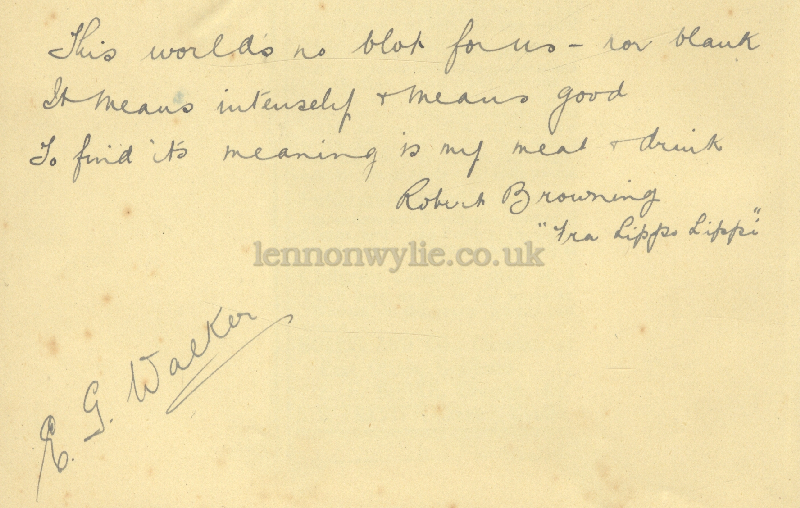 This world's no blot for us – nor blank
It means intensely & means good
To find its meaning is my meat & drink
Robert Browning
"Fra Lippo Lippi"
lennonwylie.co.uk
E. G. Walker